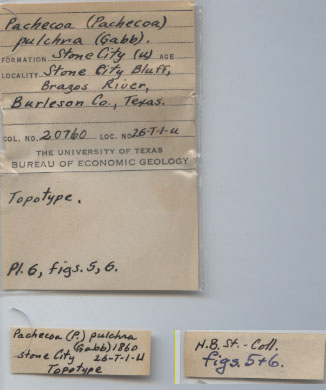 Pachecoa (Pachecoa)
pulchra (Gabb).
FORMATION Stone City (u) AGE
LOCALITY Stone City Bluff,
Brazos River,
Burleson Co., Texas.
COL. NO. 20760 LOC. NO. 26-T-1-U
THE UNIVERSITY OF TEXAS
BUREAU OF ECONOMIC GEOLOGY
Topotype.
Pl. 6, figs. 5, 6.
Pachecoa (P.) pulchra
(Gabb) 1860
Stone City 26-T-1-U
Topotype
H.B. St. - Coll.
figs. 5+6.